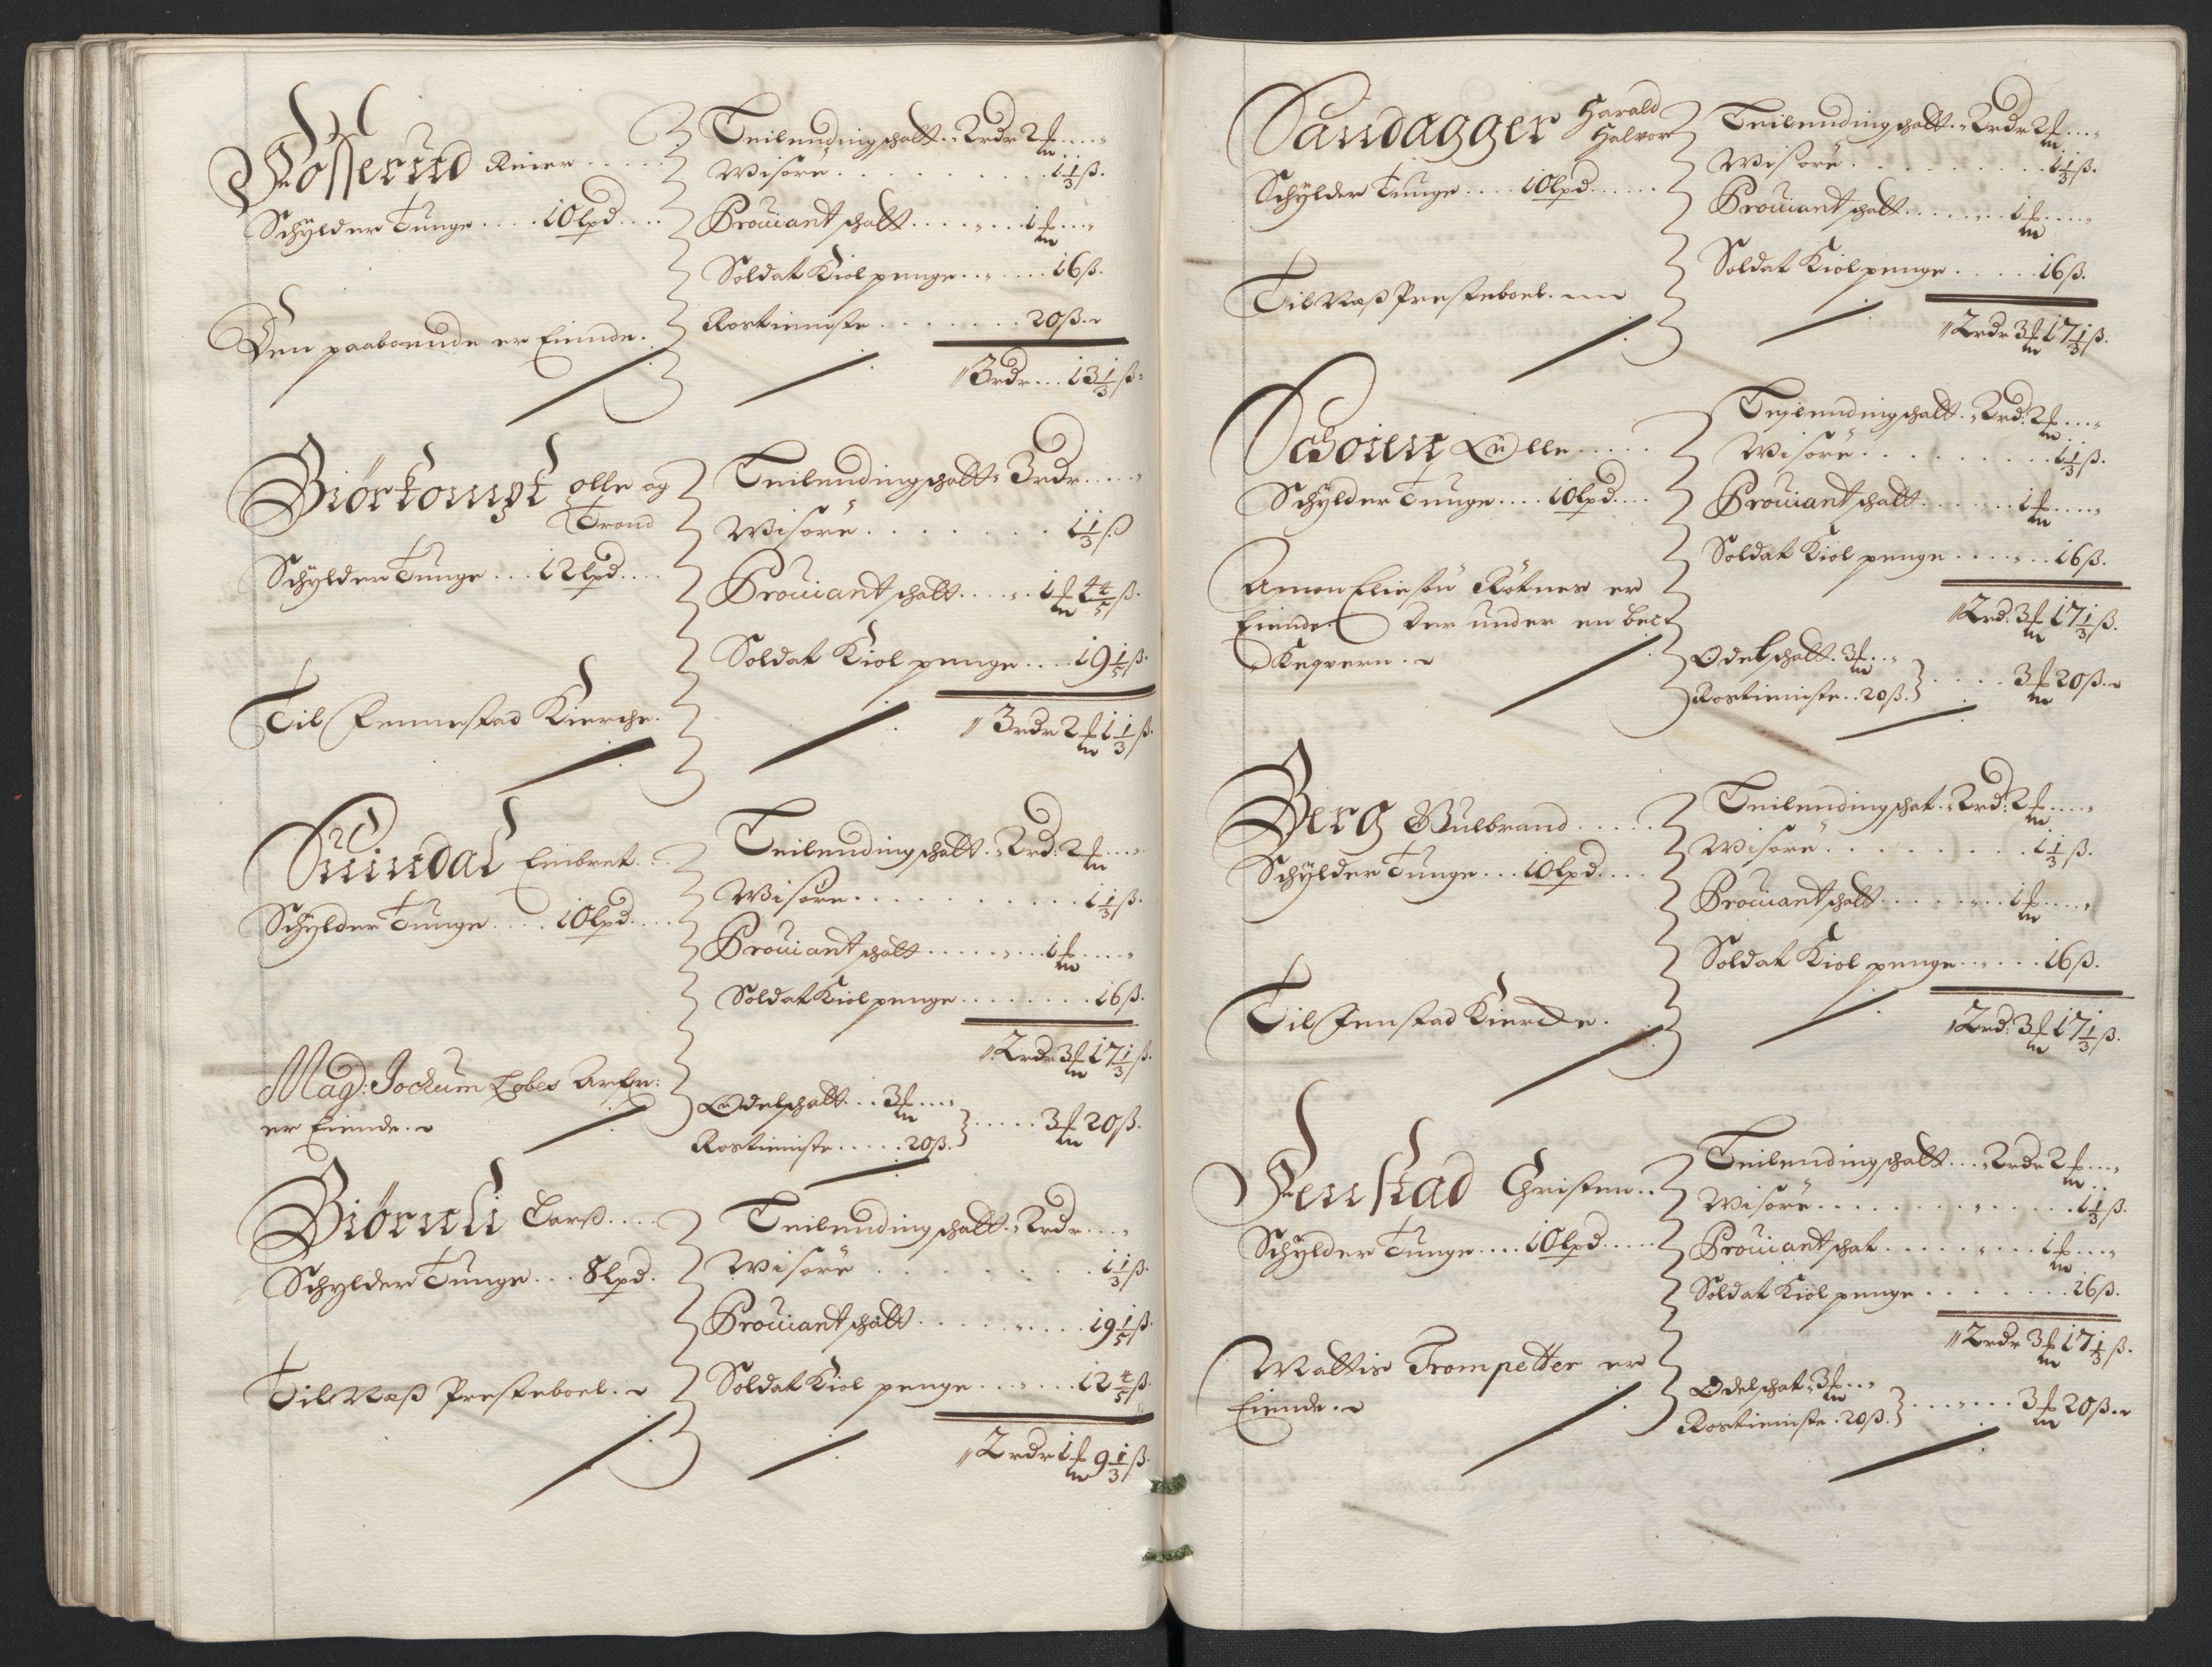 Fosserud Reier . . . . .
Schylder Tunge . . . . 10 lpd . . . .
Den paaboende er Eiende.
Teilendingschatt . 2 rdr 2 m . . .
Wisöre . . . . . . . . . 1 1/3 ß.
Prouiantschatt . . . . . . 1 m . . .
Soldat Kiolpenge . . . . . 16 ß.
Rostieniste . . . . . . . 20 ß.
3 rdr . . . 13 1/3 ß.
Biörtompt olle og
Trond
Schylder Tunge . . . 12 lpd . . . .
Til Fennestad Kierche.
Teilendingschatt . 3 rdr . . . . .
Wisöre . . . . . . . . 1 1/3 ß
Prouiantschatt . . . . . 1 m 4 4/5 ß.
Soldat Kiolpenge . . . . 19 1/5 ß.
3 rdr 2 m 1 1/3 ß.
Suindal Embret . .
Schylder Tunge . . . . 10 lpd . . . .
Mag: Jochum Lobes Arfr:
er Eiende.
Teilendingschatt . 2 rd: 2 m . . .
Wisöre . . . . . . . . . . 1 1/3 ß.
Prouiantschatt . . . . . . . 1 m . . . .
Soldat Kiolpenge . . . . . . . . 16 ß.
2 rdr 3 m 17 1/3 ß.
Odelschatt . . . 3 m . . .
Rostieniste . . . . . 20 ß. } . . . . . 3 m 20 ß.
Biörnli Larß . . . .
Schylder Tunge . . . 8 lpd.
Til Næß Presteboel.
Teilendingschatt . 2 rdr . . . .
Wisöre . . . . . . . . 1 1/3 ß.
Prouiantschatt . . . . . . . . . 19 1/5 ß.
Soldat Kiolpenge . . . . . . 12 4/5 ß.
2 rdr 1 m 9 1/3 ß.
Sandagger Harald
Halvor
Schylder Tunge . . . . 10 lpd . . . . .
Til Næß Presteboel.
Teilendingschatt . 2 rdr 2 m . . .
Wisöre . . . . . . . . . 1 1/3 ß.
Prouiantschatt . . . . . . . 1 m . . . .
Soldat Kiolpenge . . . . . 16 ß.
2 rdr 3 m 17 1/3 ß.
Schoien Olle . . . . .
Schylder Tunge . . . . 10 lpd . . . .
Amon Eliesön Rötnes er
Eiende. Der under en bec
Kegvern.
Teilendingschatt . 2 rd: 2 m . . .
Wisöre . . . . . . . . . 1 1/3 ß.
Prouiantschatt . . . . . . . 1 m . . . .
Soldat Kiolpenge . . . . . . 16 ß.
2 rd: 3 m 17 1/3 ß.
Odelschatt . 3 m . . .
Rostieniste . . 20 ß. } . . . . 3 m 20 ß.
Berg Gulbrand . . . . .
Schylder Tunge . . . 10 lpd . . . .
Til Fenstad Kierche.
Teilendingschat . 2 rd: 2 m . . . .
Wisöre . . . . . . . . 1 1/3 ß.
Prouiantschatt . . . . . . . 1 m . . . .
Soldat Kiolpenge . . . . . 16 ß.
2 rd: 3 m 17 1/3 ß.
Fenstad Christen . .
Schylder Tunge . . . . 10 lpd . . . . .
Mattis Trompetter er
Eiende.
Teilendingschatt . . . 2 rdr 2 m . . .
Wisöre . . . . . . . . . . . . 1 1/3 ß.
Prouiantschat . . . . . . . . 1 m . . .
Soldat Kiolpenge . . . . . . . 16 ß.
2 rdr 3 m 17 1/3 ß.
Odelschat . 3 m . . .
Rostieniste . 20 ß. } . . . . . . 3 m 20 ß.